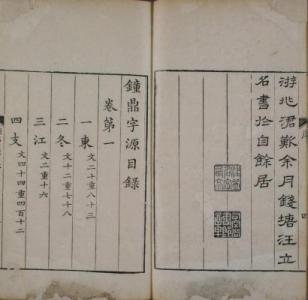 游兆涒難余月錢塘汪立
名書於自餘居
鐘鼎字源目錄
卷第一
一東 文十二重八十三
二冬 文十二重七十八
三江 文二重十六
四支 文四十四重四百十二